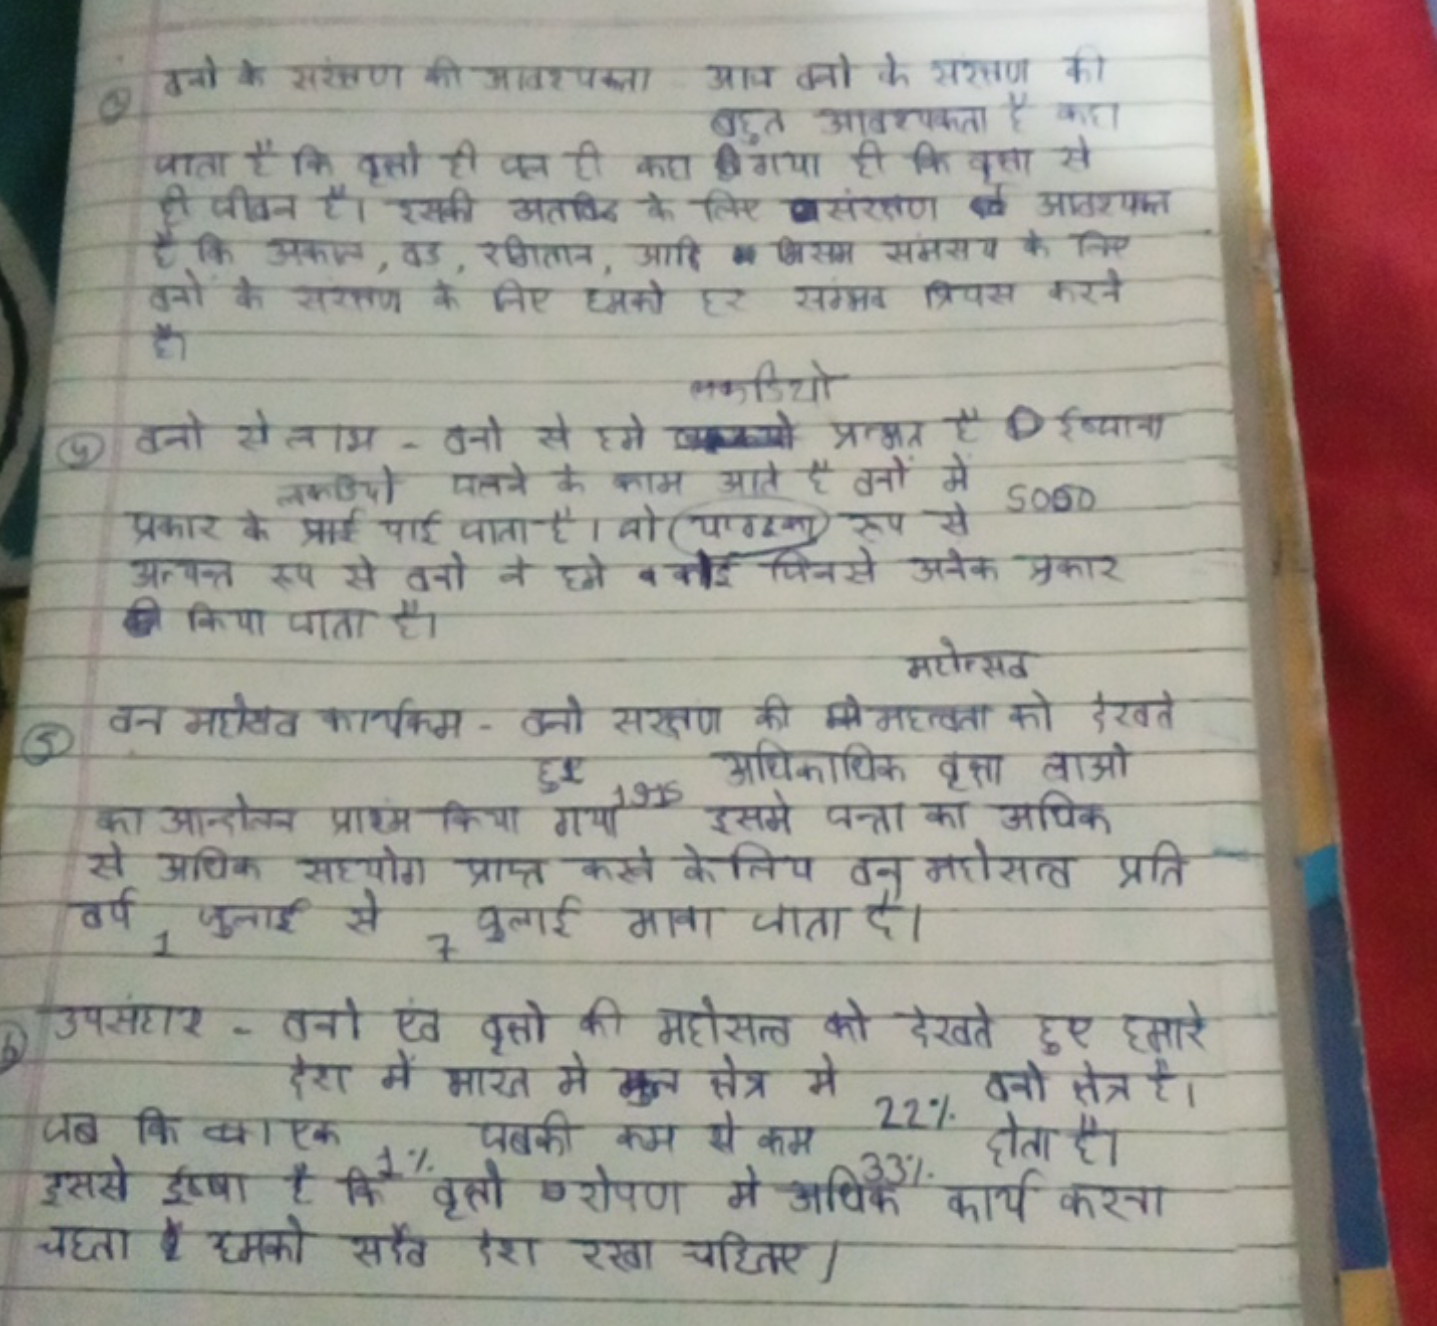 ③ वनो के सरंक्षण की आवश्यकता आज वनो के सरंक्षण की
बहुत आवश्यकता है कहा
जाता है कि वृक्षो ही जल ही कहा गया ही कि वृक्ष से
ही जीवन है। इसकी के लिए संरक्षण आवश्यक
है कि अकाल, आदि के लिए
वनों के सरंक्षण के लिए हमको हर सम्भव करने
है।
लकडियो
④ वनो से लाभ - वनो से हमे है
लकडियो जलने के काम आते है वनों में 5000
प्रकार के पाई जाता है। जो रूप से
रूप से वनो ने हमे जिनसे अनेक प्रकार
किया जाता है।
महोत्सव
⑤ वन कार्यकम - वनो सरक्षण की महत्वता को देखते
हुए अधिकाधिक वृक्ष लाओ
का आन्दोलन प्रारम्भ किया गया इसमे जन्ता का अधिक
से अधिक सहयोग प्राप्त करने के लिए वन महोसत्व प्रति
वर्ष 1 जुलाई से 7 जुलाई जाता है।
उपसंहार - वनो एंव वृक्षो की महोसत्व को देखते हुए हमारे
देश में भारत मे क्षेत्र मे 22% वनो क्षेत्र है।
जब कि 1% जबकी कम से कम 33% होता है।
इससे है कि वृक्षो रोपण मे अधिक कार्य करना
चहता है हमको सदैव देश रखा